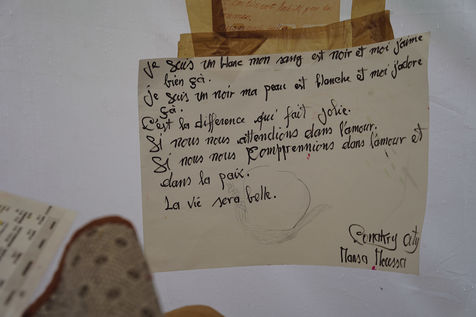 je suis un blanc mon sang est noir et moi j'aime
bien ça.
je suis un noir ma peau est blanche et moi j'adore
ça.
C'est la différence qui fait jolie.
Si nous nous attendions dans l'amour.
Si nous nous Comprennions dans l'amour et
dans la paix.
La vie sera belle.
Conakry City
Mansa Moussa